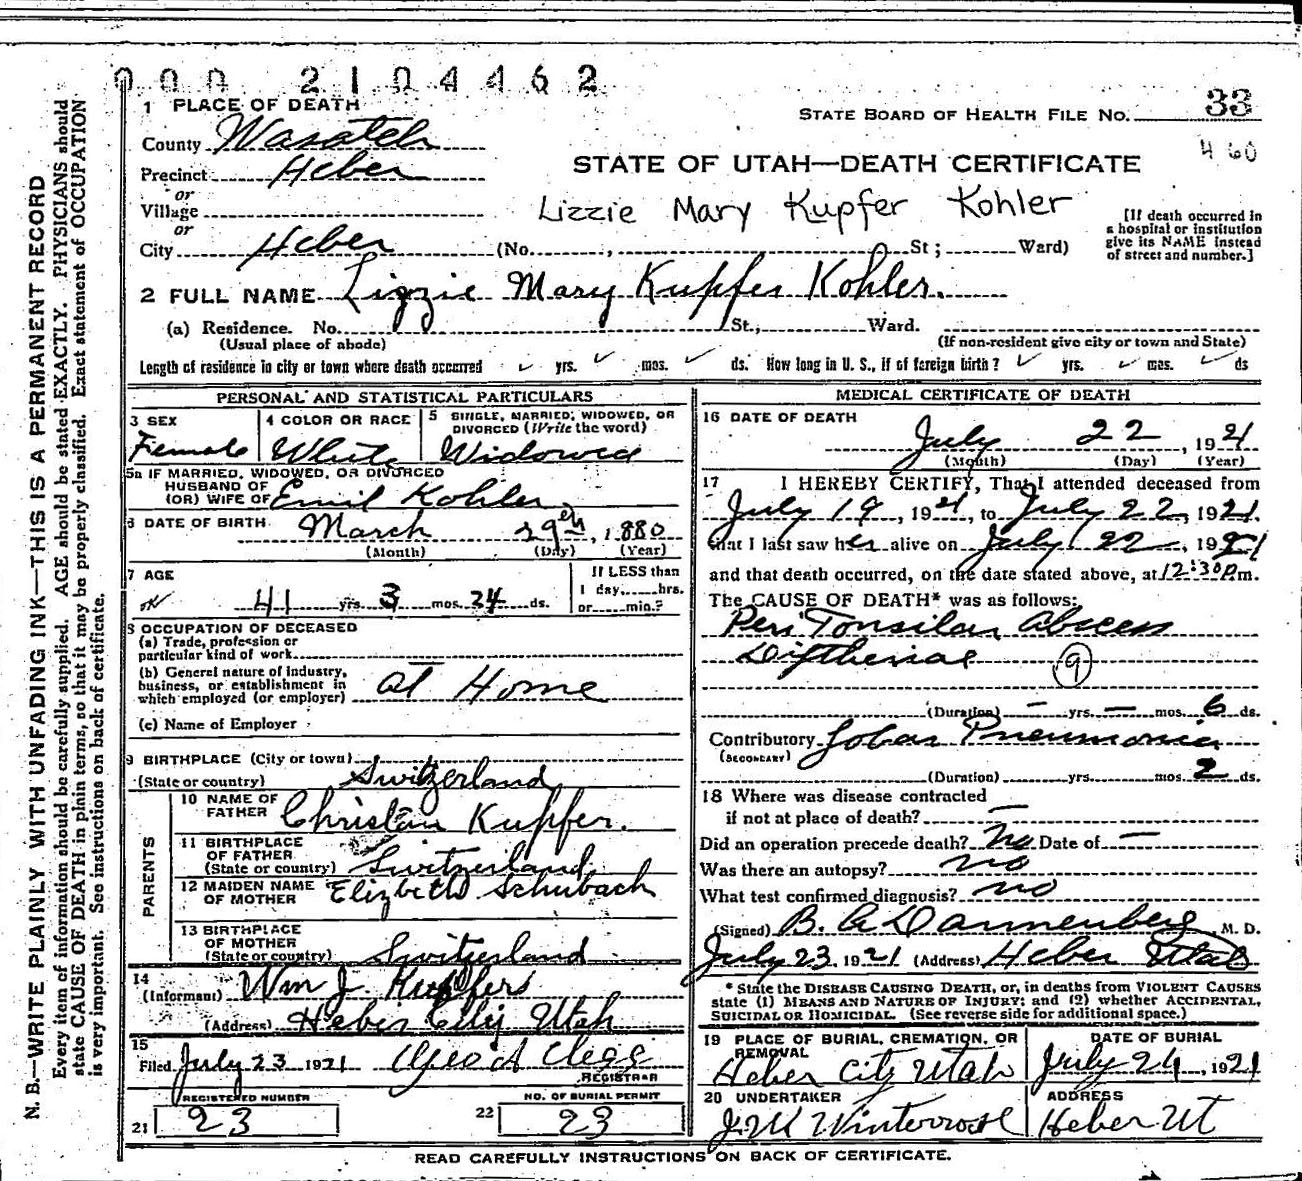 000 2104462
1 PLACE OF DEATH
STATE BOARD OF HEALTH FILE No. 33
County Wasatch
460
Precinct Heber
STATE OF UTAH—DEATH CERTIFICATE
or
Village
Lizzie Mary Kupfer Kohler
or
City Heber (No. , St ; Ward)
[If death occurred in
a hospital or institution
give its NAME instead
of street and number.]
2 FULL NAME Lizzie Mary Kupfer Kohler.
(a) Residence. No. St., Ward.
(Usual place of abode) (If non-resident give city or town and State)
Length of residence in city or town where death occurred ✓ yrs. ✓ mos. ✓ ds. How long in U. S., if of foreign birth? ✓ yrs. ✓ mos. ✓ ds
PERSONAL AND STATISTICAL PARTICULARS
3 SEX Female
4 COLOR OR RACE White
5 SINGLE, MARRIED, WIDOWED, OR
DIVORCED (Write the word)
Widowed
5a IF MARRIED, WIDOWED, OR DIVORCED
HUSBAND OF
(OR) WIFE OF Emil Kohler
6 DATE OF BIRTH March 29th, 1880
(Month) (Day) (Year)
7 AGE
41 yrs. 3 mos. 24 ds.
If LESS than
1 day, hrs.
or min.?
8 OCCUPATION OF DECEASED
(a) Trade, profession or
particular kind of work
(b) General nature of industry,
business, or establishment in
which employed (or employer) at Home
(c) Name of Employer
9 BIRTHPLACE (City or town)
(State or country) Switzerland
PARENTS
10 NAME OF
FATHER Christan Kupfer.
11 BIRTHPLACE
OF FATHER
(State or country) Switzerland
12 MAIDEN NAME
OF MOTHER Elizbeth Schubach
13 BIRTHPLACE
OF MOTHER
(State or country) Switzerland
14
(Informant) Wm J. Kupfers
(Address) Heber City Utah
15
Filed July 23 1921 Geo A Clegg
REGISTRAR
REGISTERED NUMBER
21 23
NO. OF BURIAL PERMIT
22 23
MEDICAL CERTIFICATE OF DEATH
16 DATE OF DEATH
July 22, 1921
(Month) (Day) (Year)
17 I HEREBY CERTIFY, That I attended deceased from
July 19, 1921, to July 22, 1921.
that I last saw her alive on July 22, 1921
and that death occurred, on the date stated above, at 12:30 p m.
The CAUSE OF DEATH* was as follows:
Peri Tonsilar abscess
Diftheriae 9
(Duration) — yrs. — mos. 6 ds.
Contributory Lobar Pneumonia
(SECONDARY)
(Duration) yrs. mos. 2 ds.
18 Where was disease contracted
if not at place of death? —
Did an operation precede death? no Date of —
Was there an autopsy? no
What test confirmed diagnosis? no
(Signed) B. A Dannenberg, M. D.
July 23, 1921 (Address) Heber Utah
* State the DISEASE CAUSING DEATH, or, in deaths from VIOLENT CAUSES
state (1) MEANS AND NATURE OF INJURY; and (2) whether ACCIDENTAL,
SUICIDAL OR HOMICIDAL. (See reverse side for additional space.)
19 PLACE OF BURIAL, CREMATION, OR
REMOVAL
Heber City Utah
DATE OF BURIAL
July 24, 1921
20 UNDERTAKER
J.W. Winterrose
ADDRESS
Heber Ut
READ CAREFULLY INSTRUCTIONS ON BACK OF CERTIFICATE.
N. B.—WRITE PLAINLY WITH UNFADING INK—THIS IS A PERMANENT RECORD
Every item of information should be carefully supplied. AGE should be stated EXACTLY. PHYSICIANS should
state CAUSE OF DEATH in plain terms, so that it may be properly classified. Exact statement of OCCUPATION
is very important. See instructions on back of certificate.